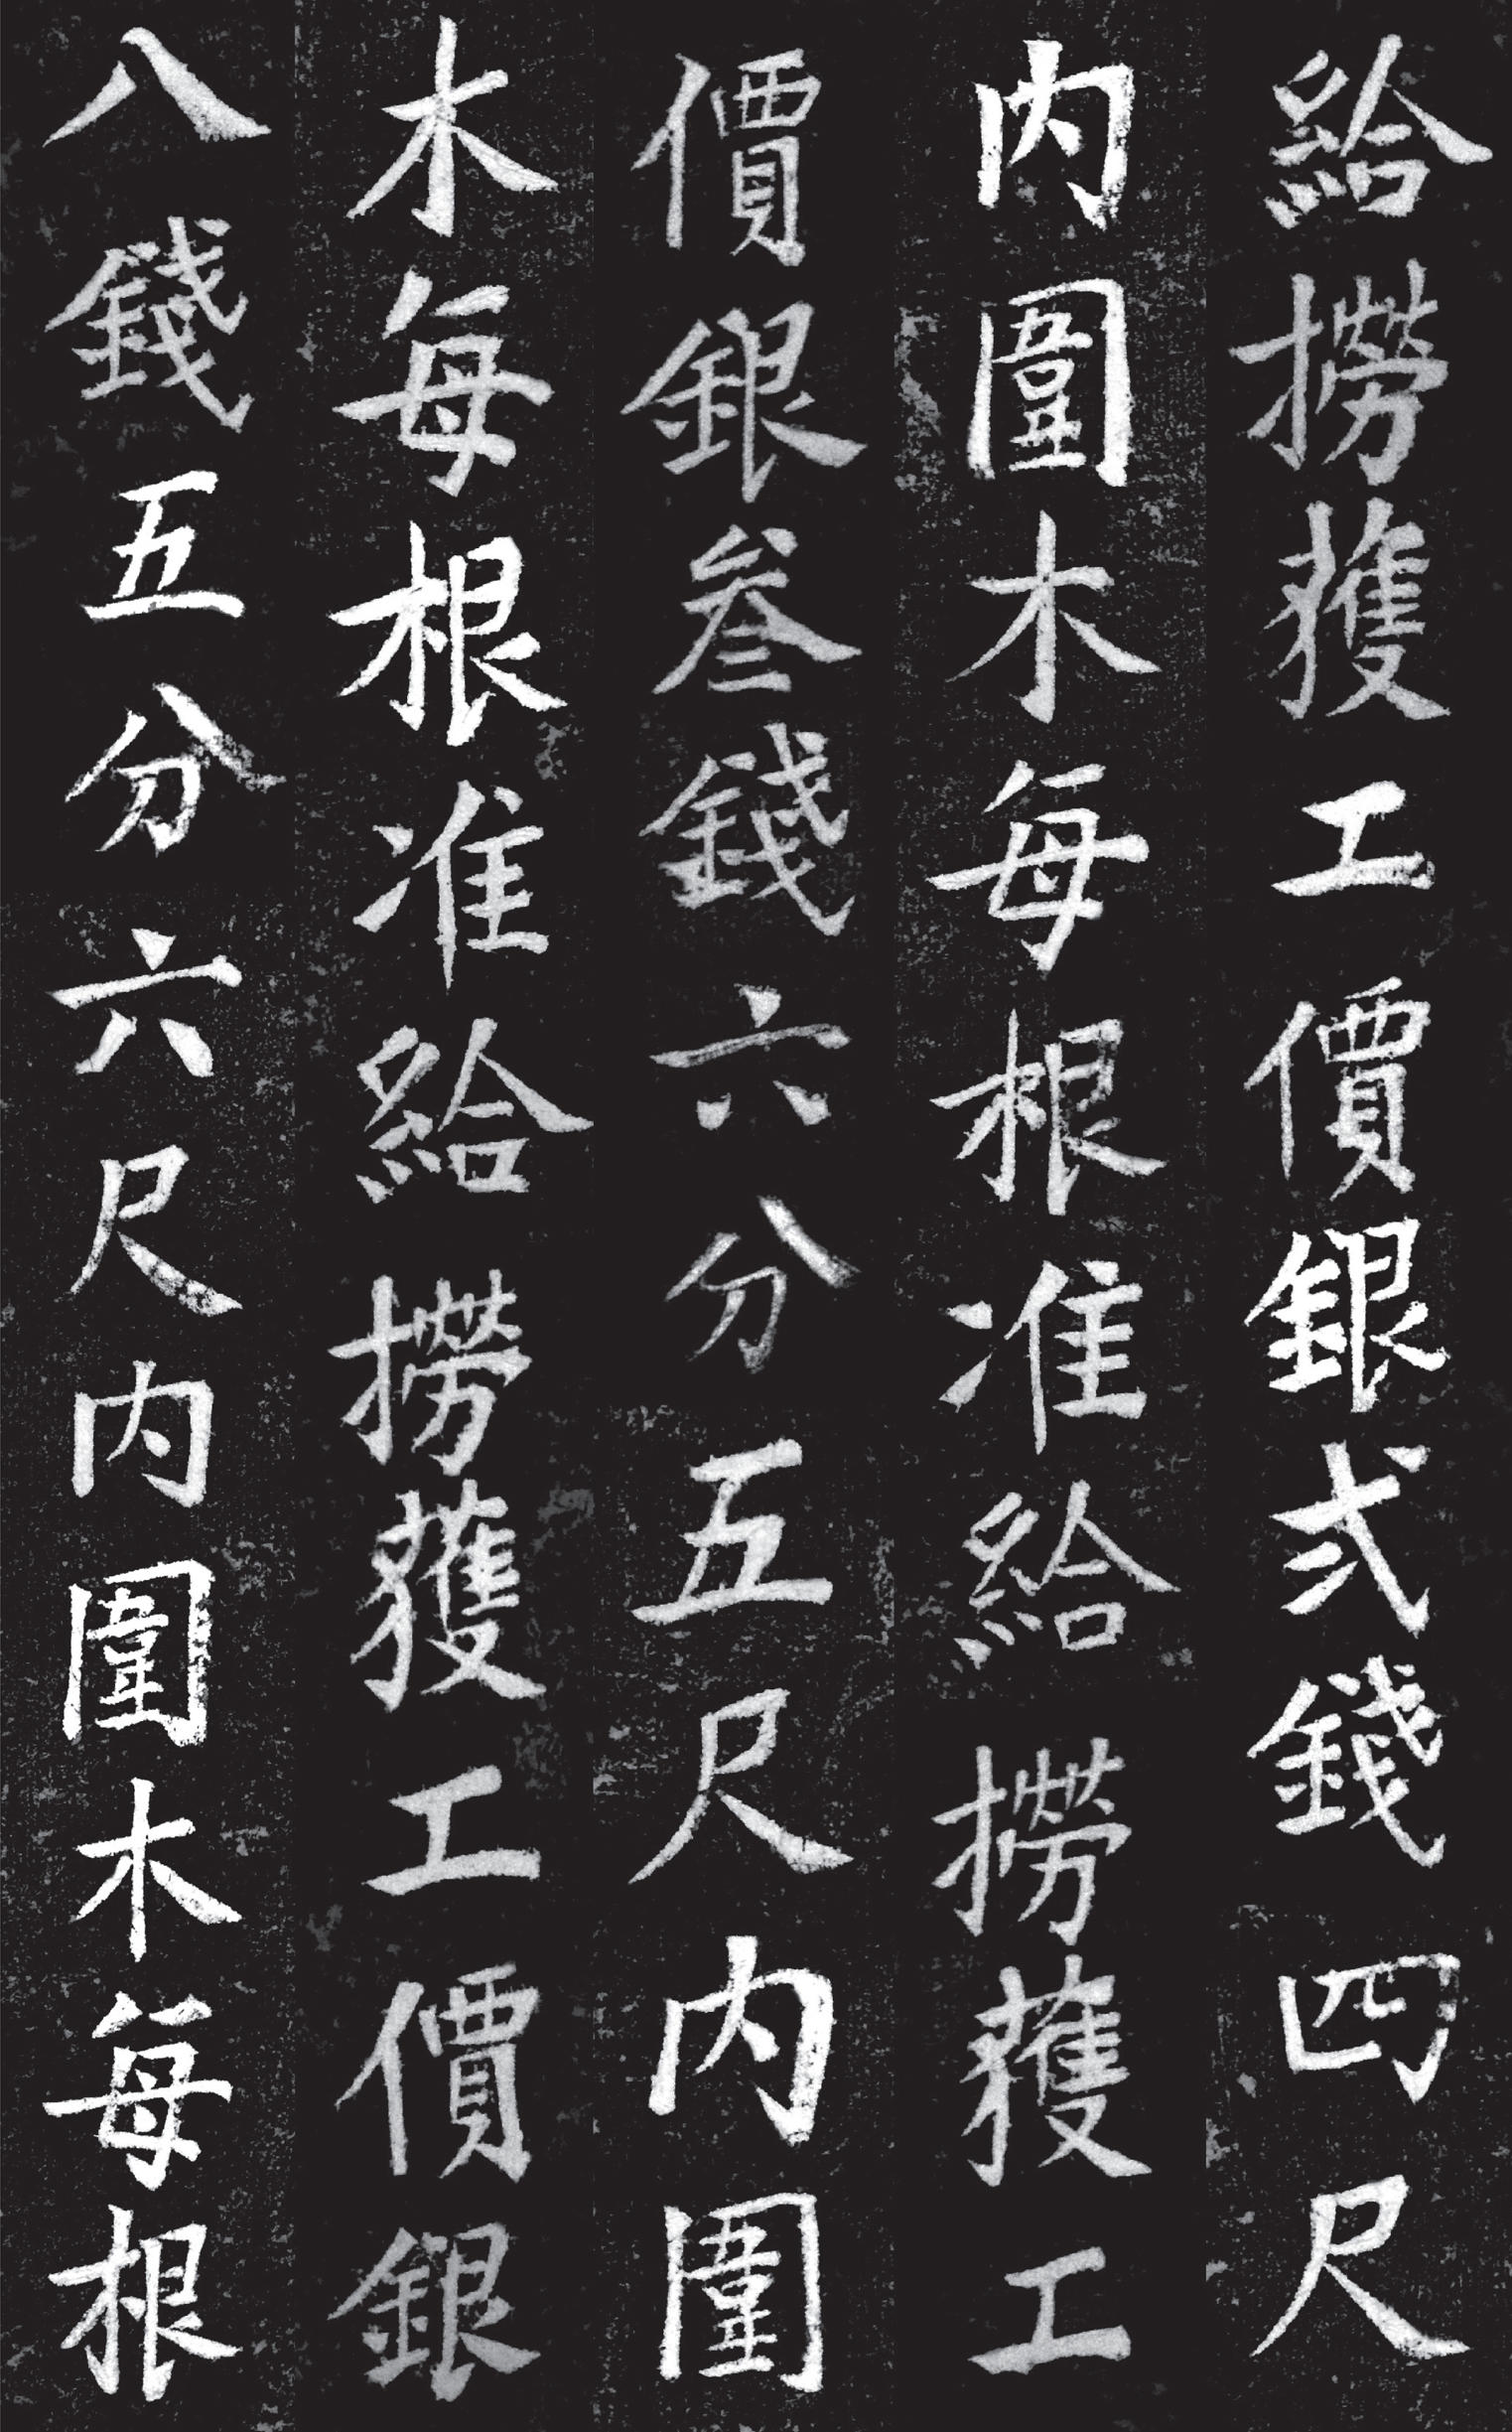 給撈獲工價銀弍錢四尺
内圍木每根准給撈獲工
價銀叄錢六分五尺内圍
木每根准給撈獲工價銀
八錢五分六尺内圍木每根